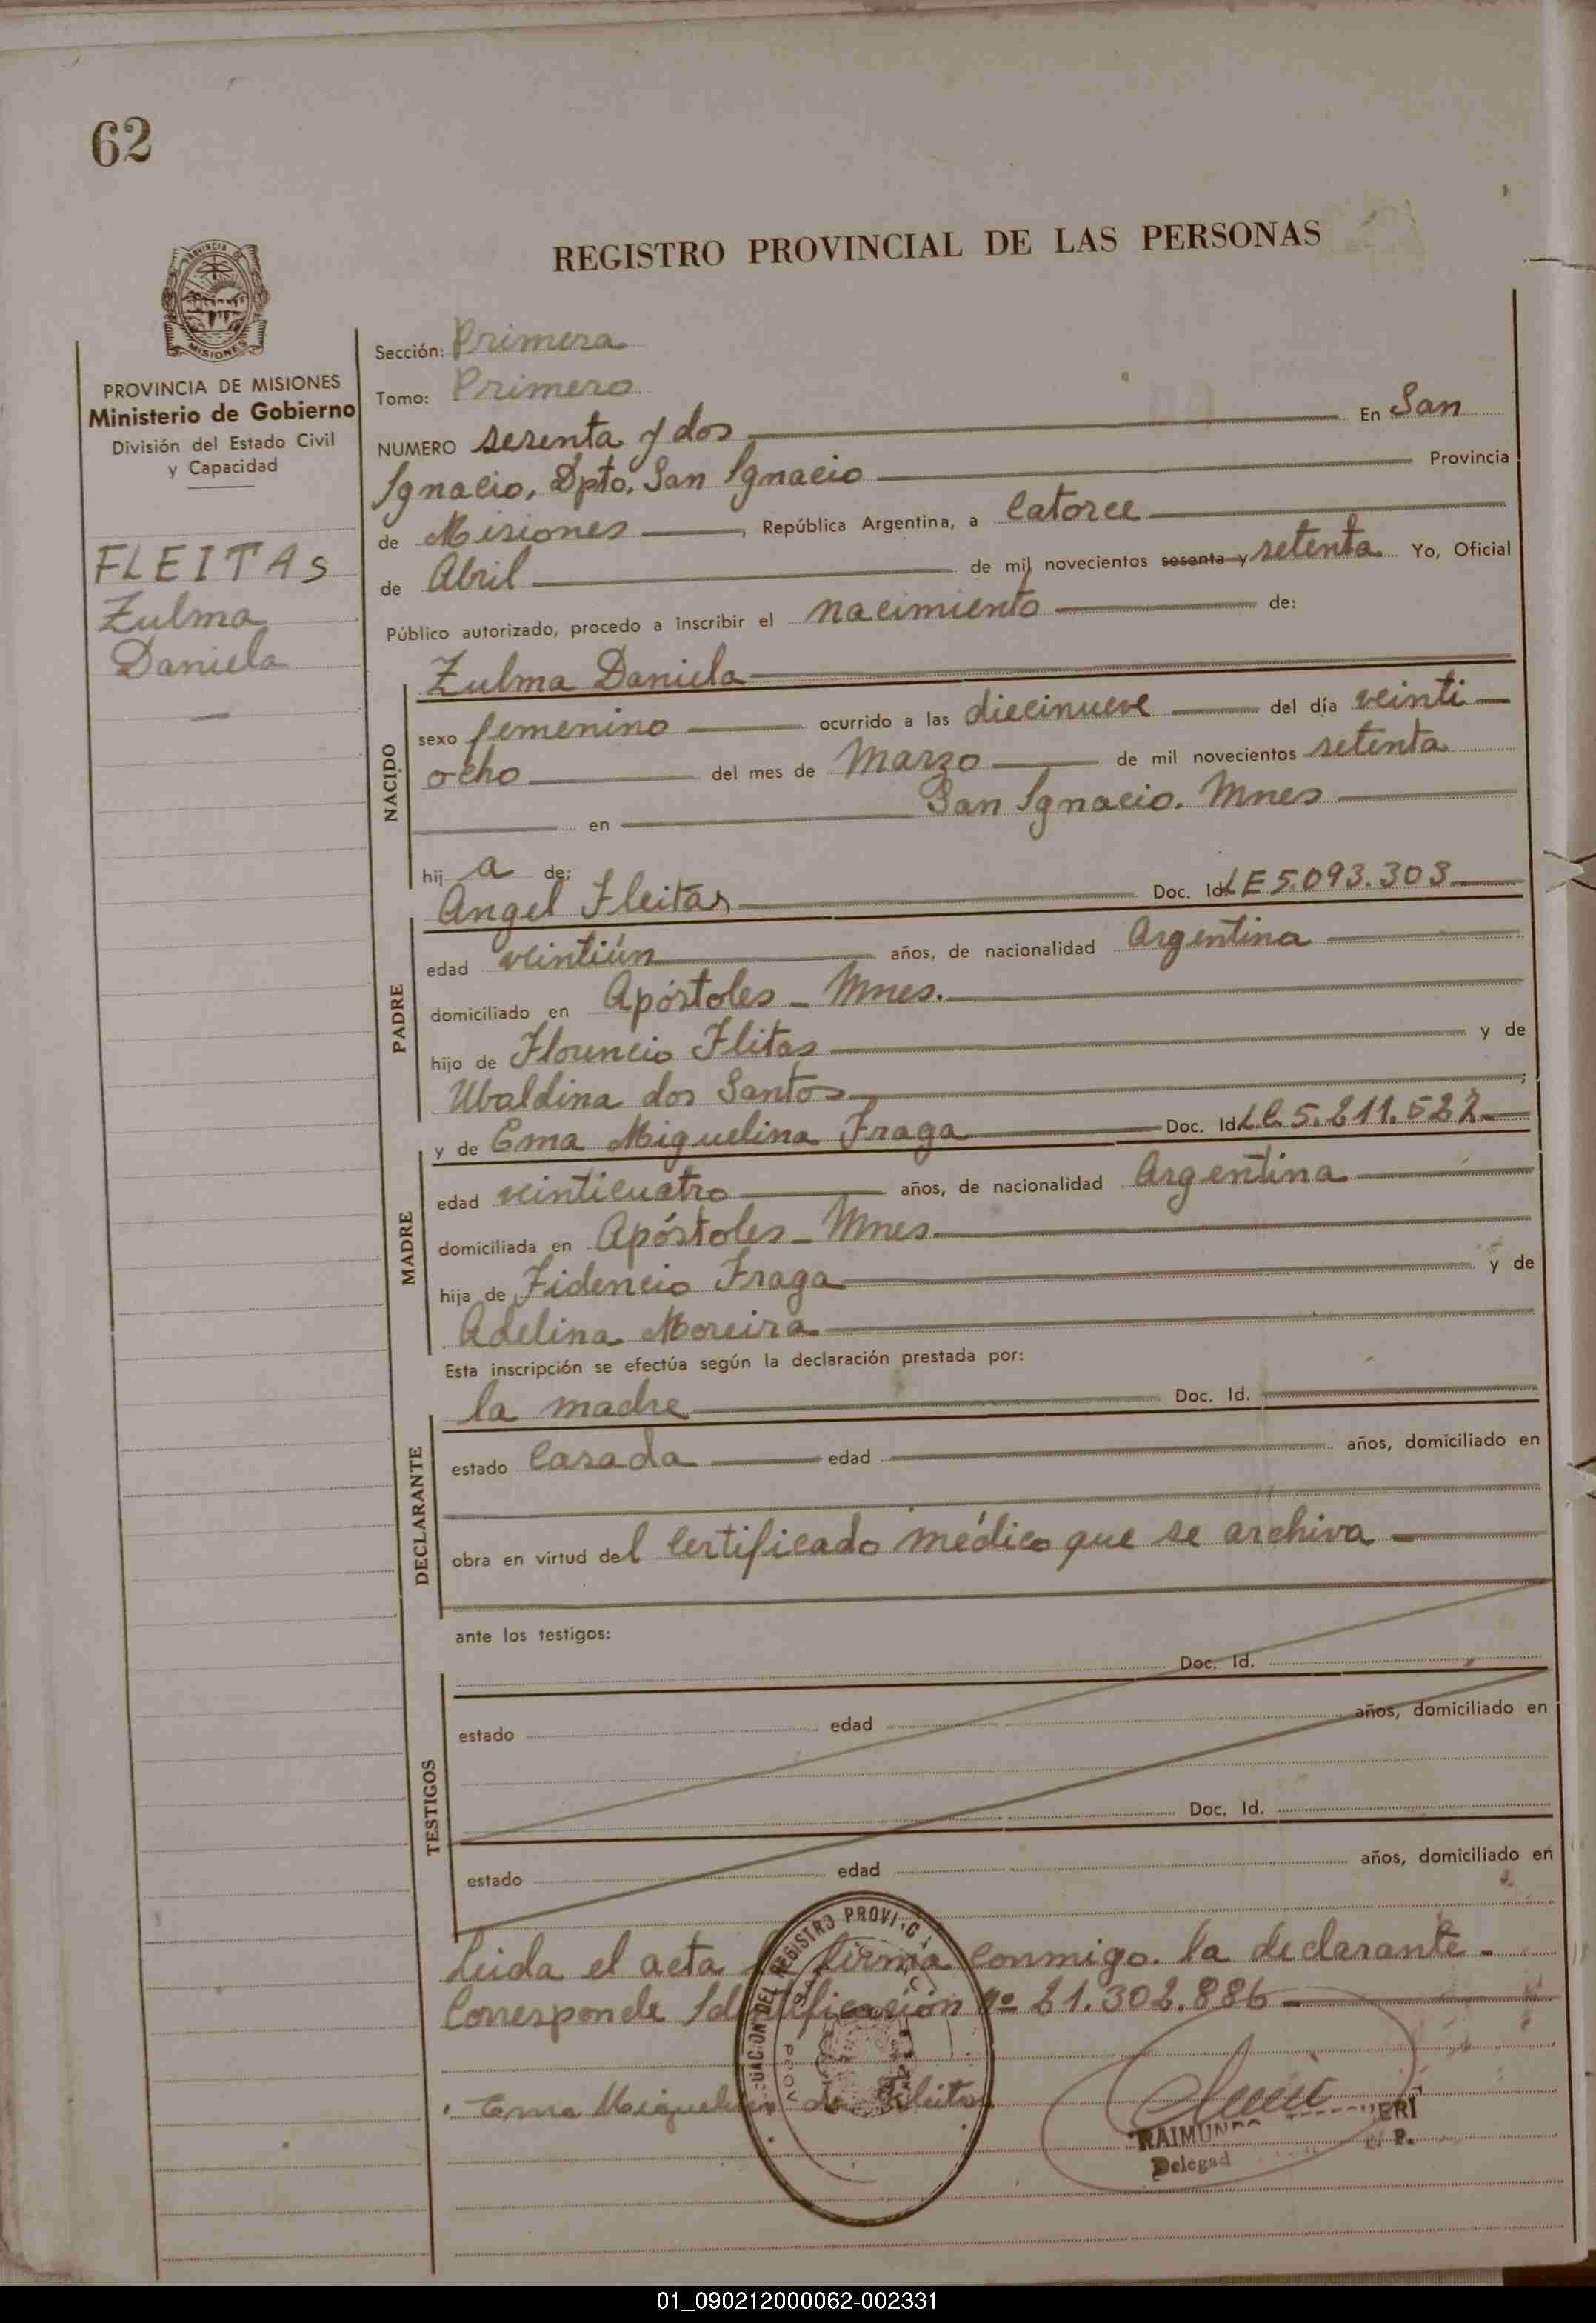 62
REGISTRO PROVINCIAL DE LAS PERSONAS
PROVINCIA
MISIONES
PROVINCIA DE MISIONES
Ministerio de Gobierno
División del Estado Civil
y Capacidad
FLEITAS
Zulma
Daniela
Sección: Primera
Tomo: Primero
NUMERO sesenta y dos En San
Ignacio, Dpto. San Ignacio Provincia
de Misiones, República Argentina, a Catorce
de Abril de mil novecientos sesenta y setenta Yo, Oficial
Público autorizado, procedo a inscribir el nacimiento de:
NACIDO
Zulma Daniela
sexo femenino ocurrido a las diecinueve del día veinti
ocho del mes de Marzo de mil novecientos setenta
en San Ignacio. Mnes
hij a de:
PADRE
Angel Fleitas Doc. Id. LE 5.093.303
edad veintiún años, de nacionalidad Argentina
domiciliado en Apóstoles - Mnes.
hijo de Florencio Flitas y de
Ubaldina dos Santos
MADRE
y de Ema Miguelina Fraga Doc. Id. L.C. 5.211.522
edad veinticuatro años, de nacionalidad Argentina
domiciliada en Apóstoles - Mnes.
hija de Fidencio Fraga y de
Adelina Moreira
Esta inscripción se efectúa según la declaración prestada por:
DECLARANTE
la madre Doc. Id.
estado Casada edad años, domiciliado en
obra en virtud del Certificado médico que se archiva
ante los testigos:
TESTIGOS
Doc. Id.
estado edad años, domiciliado en
Doc. Id.
estado edad años, domiciliado en
Leida el acta firma conmigo. la declarante.
Corresponde Identificación Nº 21.302.886
DEL REGISTRO
PROV
Ema Miguelina de Fleitas
RAIMUN
Delegad
P.
01_090212000062-002331